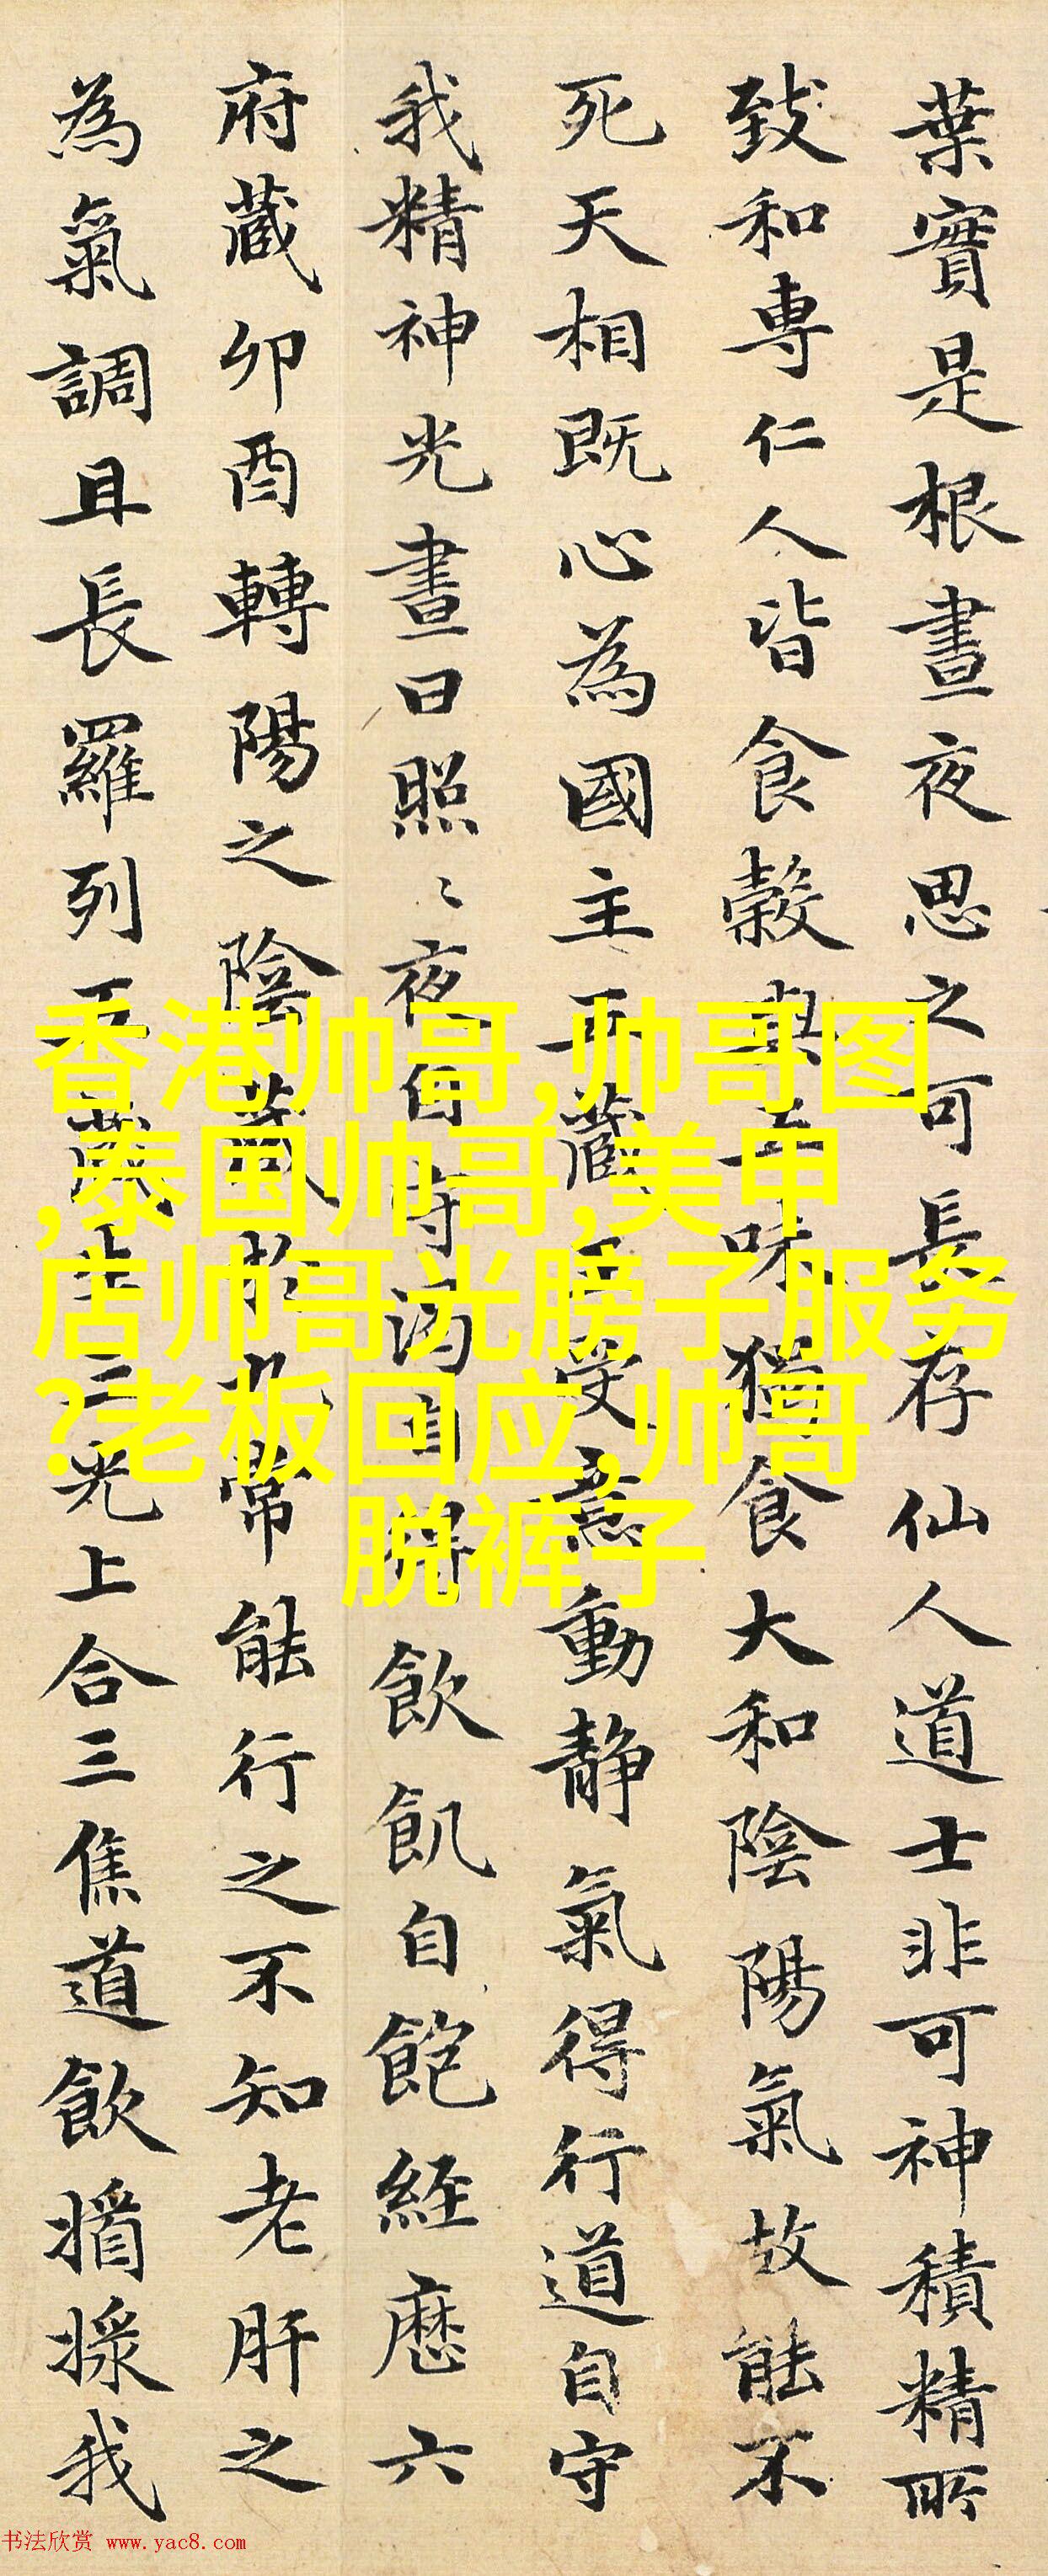 葉實是根晝夜思之可長存仙人道士非可神積精所
致和專仁人皆食穀與五味獨食大和陰陽氣故能不
死天相既心為國主五藏王受意動静氣得行道自守
我精神光晝日照〻夜自守渴自得飲飢自飽經歷六
府藏卯酉轉陽之陰藏於九常能行之不知老肝之
為氣調且長羅列五藏生三光上合三焦道飲我
香港帅哥,帅哥图
,泰国帅哥,美甲
店帅哥光膀子服务
?老板回应,帅哥
脱裤子
书法欣赏 www.yac8.com